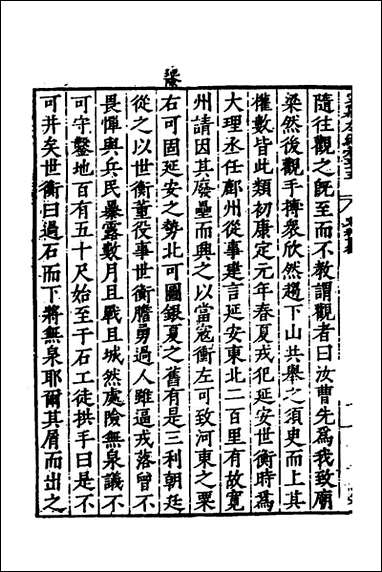 隨往觀之旣至而不教謂觀者曰汝曹先爲我致廟
梁然後觀手搏衆欣然趨下山共舉之須吏而上其
權數皆此類初康定元年春夏戎犯延安世衡時爲
大理丞任鄜州從事建言延安東北二百里有故寬
州請因其廢壘而興之以當寇衝左可致河東之粟
右可固延安之勢北可圖銀夏之舊有是三利朝廷
從之以世衡董役事世衡膽勇過人雖逼戎落曾不
畏憚與兵民暴露數月且戰且城然處險無泉議不
可守鑿地百有五十尺始至于石工徒拱手曰是不
可井矣世衡曰過石而下將無泉耶爾其屑而出之